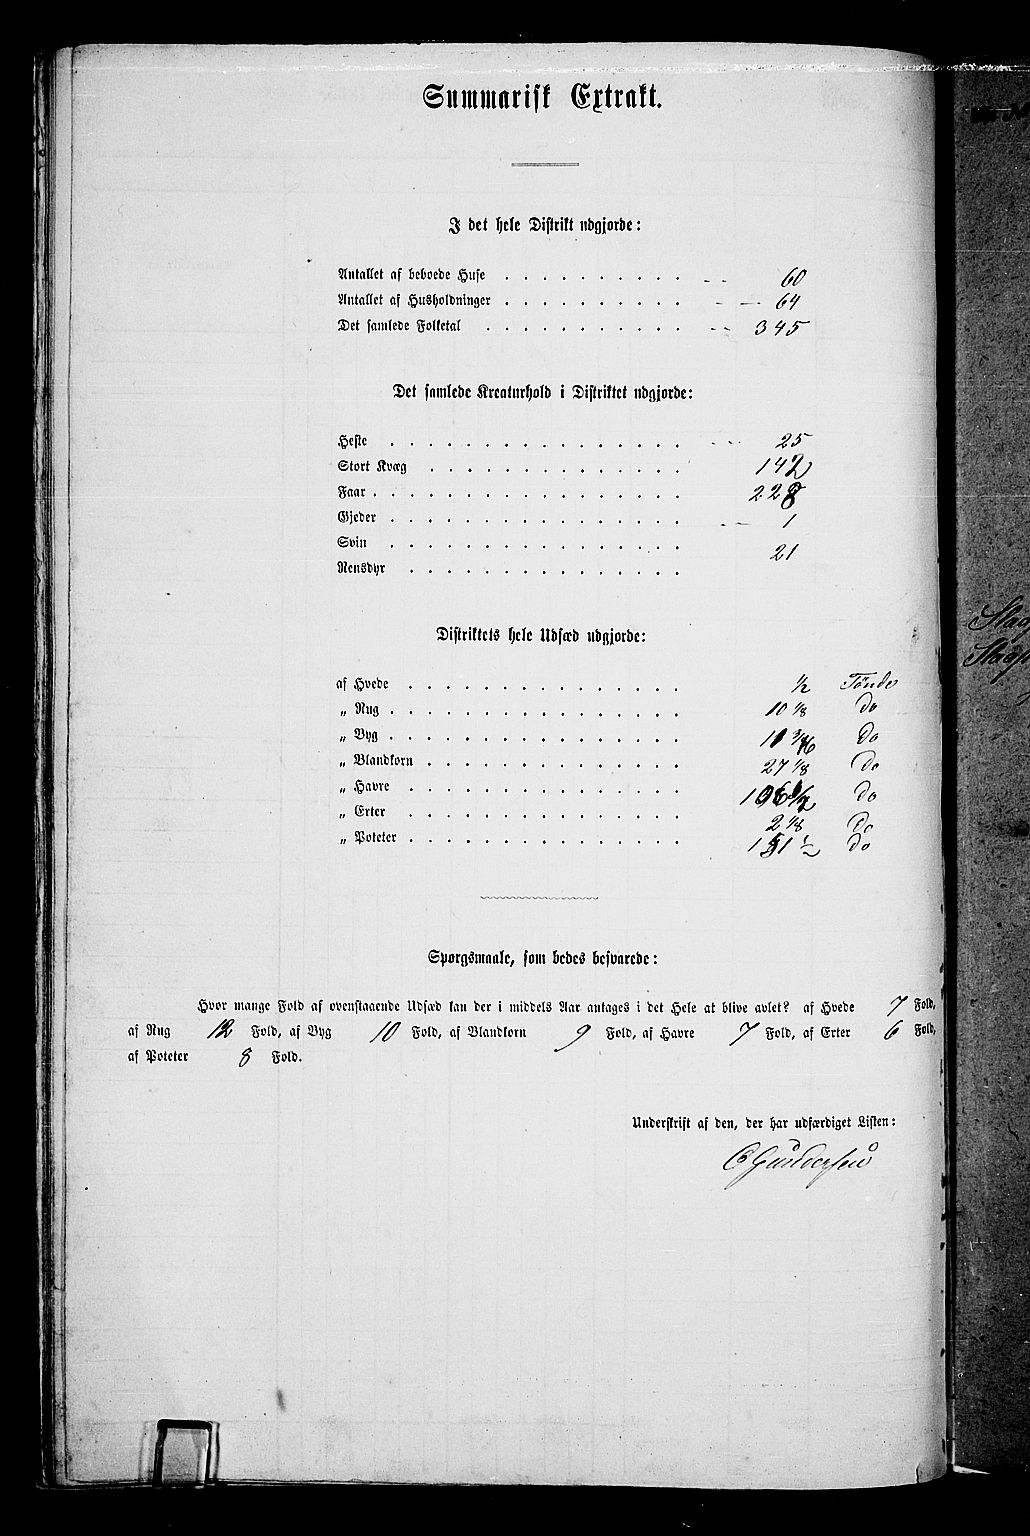 Summarisk Extrakt.
I det hele Distrikt udgjorde:
Antallet af beboede Huse . . . . . . . . . . 60
Antallet af Husholdninger . . . . . . . . . . 64
Det samlede Folketal . . . . . . . . . . . 345
Det samlede Kreaturhold i Distriktet udgjorde:
Heste . . . . . . . . . . . . . . . . 25
Stort Kvæg . . . . . . . . . . . . . . 142
Faar . . . . . . . . . . . . . . . . . 228
Gjeder . . . . . . . . . . . . . . . . 1
Svin . . . . . . . . . . . . . . . . 21
Rensdyr . . . . . . . . . . . . . . .
Distriktets hele Udsæd udgjorde:
af Hvede . . . . . . . . . . . . . . . 1/2 Tønde
„ Rug . . . . . . . . . . . . . . . . 10 1/8 Do
„ Byg . . . . . . . . . . . . . . . . 11 3/16 Do
„ Blandkorn . . . . . . . . . . . . . . 27 1/8 Do
„ Havre . . . . . . . . . . . . . . . Do
„ Erter . . . . . . . . . . . . . . . 2 1/8 Do
„ Poteter . . . . . . . . . . . . . . . 151 1/2 Do
Spørgsmaale, som bedes besvarede:
Hvor mange Fold af ovenstaaende Udsæd kan der i middels Aar antages i det Hele at blive avlet? af Hvede 7 Fold,
af Rug 12 Fold, af Byg 10 Fold, af Blandkorn 9 Fold, af Havre 7 Fold, af Erter 6 Fold,
af Poteter 8 Fold.
Underskrift af den, der har udfærdiget Listen:
Gundersen